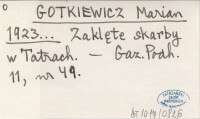 GOTKIEWICZ Marian
1923... Zaklęte skarby
w Tatrach. – Gaz. Podh.
11, nr 49.